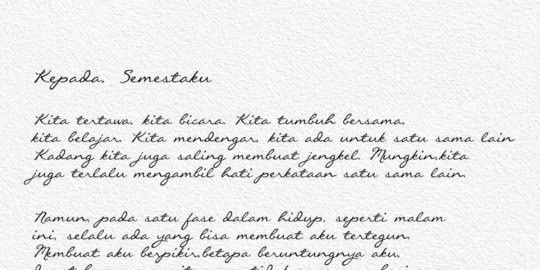 Kepada, Semestaku
Kita tertawa, kita bicara. Kita tumbuh bersama,
kita belajar. Kita mendengar, kita ada untuk satu sama lain
Kadang kita juga saling membuat jengkel. Mungkin,kita
juga terlalu mengambil hati perkataan satu sama lain.
Namun, pada satu fase dalam hidup, seperti malam
ini, selalu ada yang bisa membuat aku tertegun.
Membuat aku berpikir,betapa beruntungnya aku,